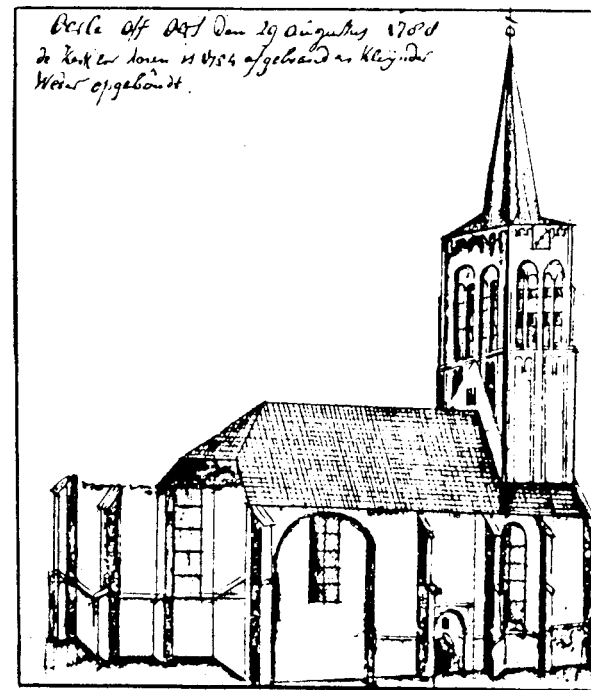 Oerle off Oers den 29 augustus 1788
de Kerk en toren is 1754 afgebrand en Kleijnder
Weder opgeboudt.